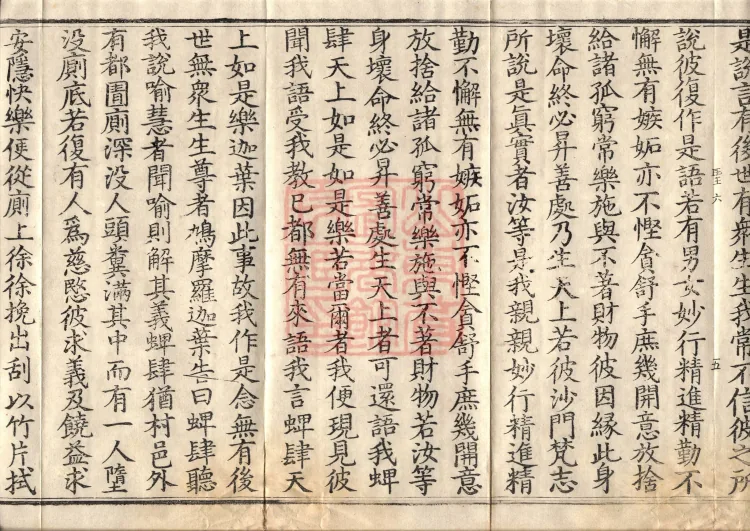 是說言有後世有衆生生我常不信彼之所
說彼復作是語若有男女妙行精進精勤不
懈無有嫉妬亦不慳貪舒手庶幾開意放捨
給諸孤窮常樂施與不著財物彼因緣此身
壞命終必昇善處乃生天上若彼沙門梵志
所說是真實者汝等是我親親妙行精進精
勤不懈無有嫉妬亦不慳貪舒手庶幾開意
放捨給諸孤窮常樂施與不著財物若汝等
身壞命終必昇善處生天上者可還語我蜱
肆天上如是如是樂若當爾者我便現見彼
聞我語受我教已都無有來語我言蜱肆天
上如是樂迦葉因此事故我作是念無有後
世無衆生生尊者鳩摩羅迦葉告曰蜱肆聽
我說喻慧者聞喻則解其義蜱肆猶村邑外
有都圊廁深没人頭糞滿其中而有一人墮
没廁底若復有人爲慈愍彼求義及饒益求
安隱快樂便從廁上徐徐挽出刮以竹片拭